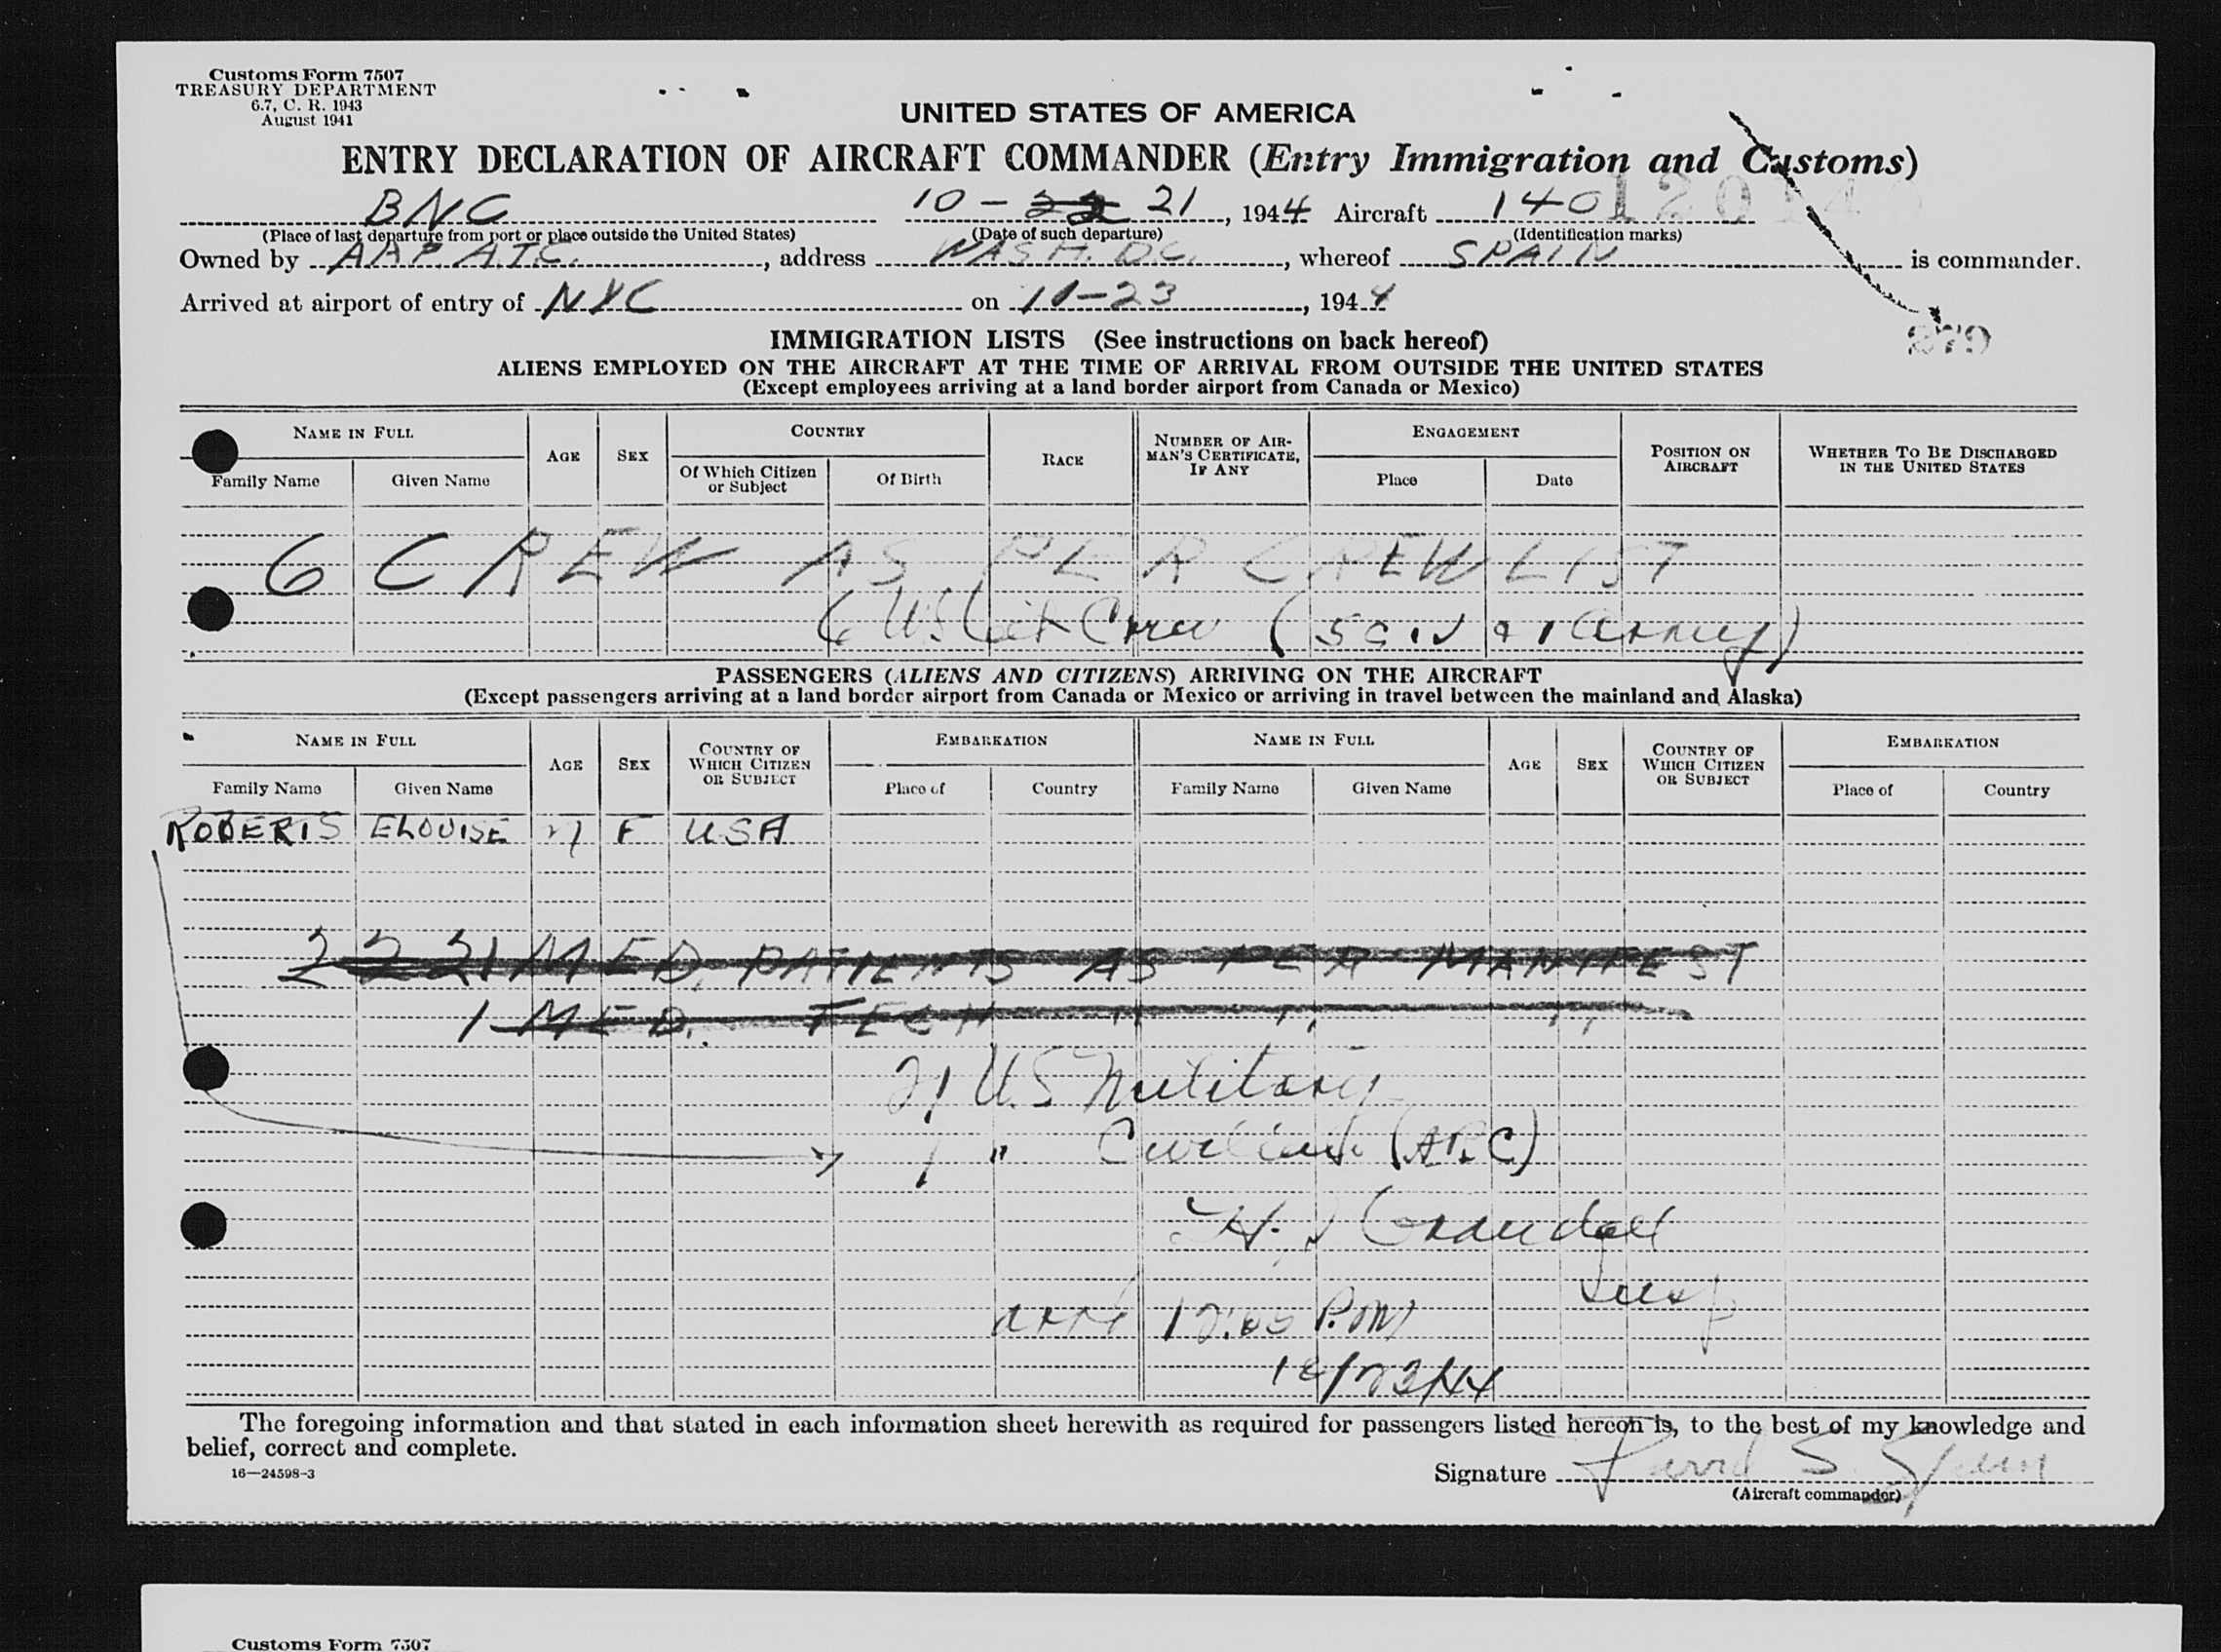 Customs Form 7507
TREASURY DEPARTMENT
6.7, C. R. 1943
August 1941
UNITED STATES OF AMERICA
ENTRY DECLARATION OF AIRCRAFT COMMANDER (Entry Immigration and Customs)
BNC 10 - 22 21, 1944 Aircraft 140
(Place of last departure from port or place outside the United States) (Date of such departure) (Identification marks)
Owned by A.T.C., address WASH. D.C., whereof SPAIN is commander.
Arrived at airport of entry of NYC on 10-23, 1944
879
IMMIGRATION LISTS (See instructions on back hereof)
ALIENS EMPLOYED ON THE AIRCRAFT AT THE TIME OF ARRIVAL FROM OUTSIDE THE UNITED STATES
(Except employees arriving at a land border airport from Canada or Mexico)
NAME IN FULL AGE SEX COUNTRY RACE NUMBER OF AIRMAN'S CERTIFICATE, IF ANY ENGAGEMENT POSITION ON AIRCRAFT WHETHER TO BE DISCHARGED IN THE UNITED STATES
Family Name Given Name Of Which Citizen or Subject Of Birth Place Date
6 CREW AS PER CREW LIST
6 US Cit Crew (5 Civ & 1 Army)
PASSENGERS (ALIENS AND CITIZENS) ARRIVING ON THE AIRCRAFT
(Except passengers arriving at a land border airport from Canada or Mexico or arriving in travel between the mainland and Alaska)
NAME IN FULL AGE SEX COUNTRY OF WHICH CITIZEN OR SUBJECT EMBARKATION NAME IN FULL AGE SEX COUNTRY OF WHICH CITIZEN OR SUBJECT EMBARKATION
Family Name Given Name Place of Country Family Name Given Name Place of Country
ROBERTS ELOUISE F USA
2 22 21 MED. PATIENTS AS PER MANIFEST
1 MED. TECH " " "
21 U.S Military
1 " Civilian (ARC)
H. J Crandall
Insp
arrd 12:05 P.M
10/23/44
The foregoing information and that stated in each information sheet herewith as required for passengers listed hereon is, to the best of my knowledge and
belief, correct and complete.
16—24598-3
Signature David S. Spain
(Aircraft commander)
Customs Form 7507